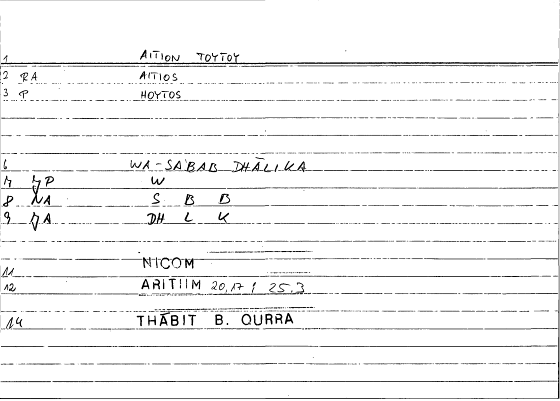 1 AITION TOYTOY
2 RA AITIOS
3 P HOYTOS
6 WA-SABAB DHĀLIKA
7 P W
8 NA S B B
9 A DH L K
11 NICOM
12 ARITIIM 20,17 / 25.3
14 THĀBIT B. QURRA